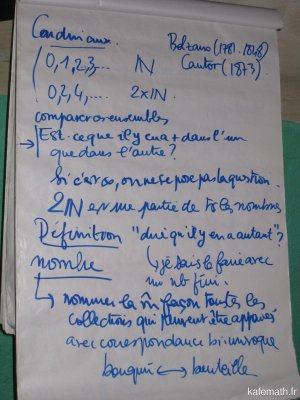 Cardinaux. Bolzano (1781-1848)
0,1,2,3... ℕ Cantor (1873).
0,2,4,.... 2×ℕ
comparer des ensembles
→ Est-ce que il y en a + dans l'un
que dans l'autre?
Si c'est ∞, on ne se pose pas la question.
2ℕ est une partie de ts les nombres
Définition "dire qu'il y en a autant"?
nombre ↳ je sais le faire avec
un nb fini.
↳ nommer la m̂ façon toutes les
collections qui peuvent être
avec correspondance biunivoque
bouquin ↔ bouteille
kafemath.fr